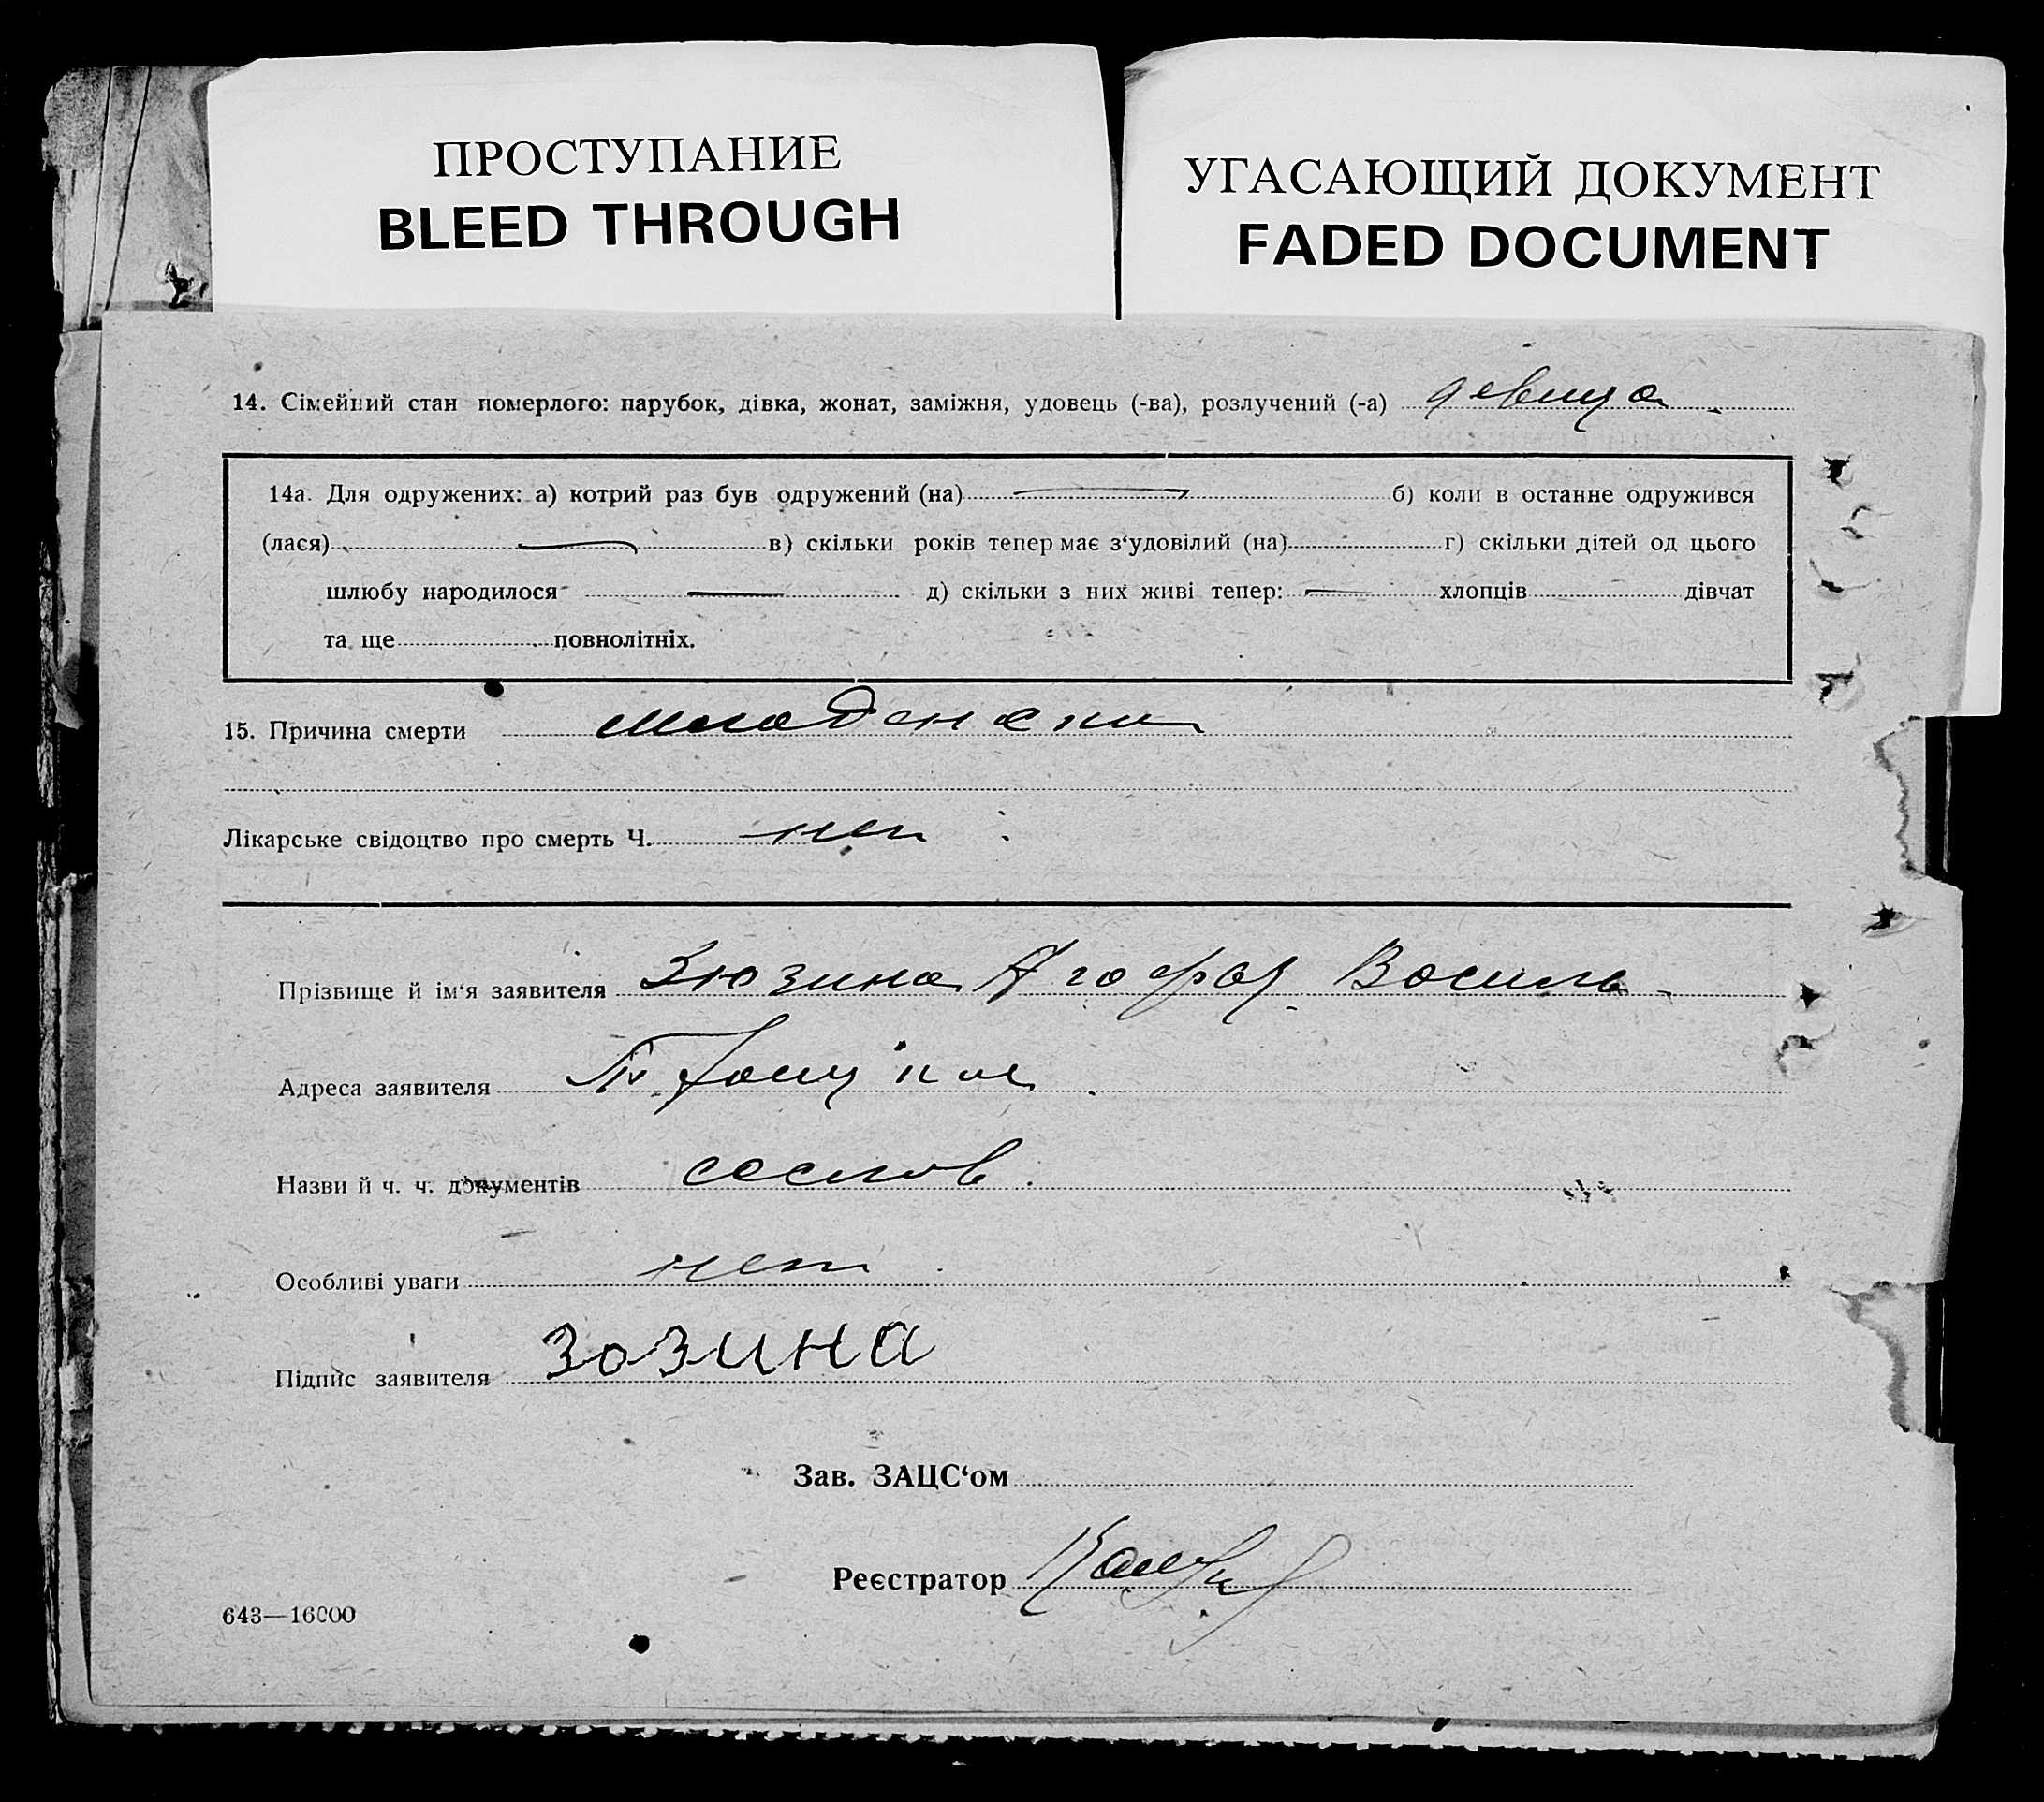 ПРОСТУПАНИЕ
BLEED THROUGH
УГАСАЮЩИЙ ДОКУМЕНТ
FADED DOCUMENT
14. Сімейний стан померлого: парубок, дівка, жонат, заміжня, удовець (-ва), розлучений (-а) девица
14а. Для одружених: а) котрий раз був одружений (на) б) коли в останне одружився
(лася) в) скільки років тепер має з‘удовілий (на) г) скільки дітей од цього
шлюбу народилося д) скільки з них живі тепер: — хлопців дівчат
та ще повнолітніх.
15. Причина смерти младенская
Лікарське свідоцтво про смерть Ч. нет
Прізвище й ім‘я заявителя Зюзина Агафья Василь
Адреса заявителя
Назви й ч. ч. документів
Особливі уваги нет
Підпис заявителя Зозина
Зав. ЗАЦС‘ом
Реєстратор
643—16000